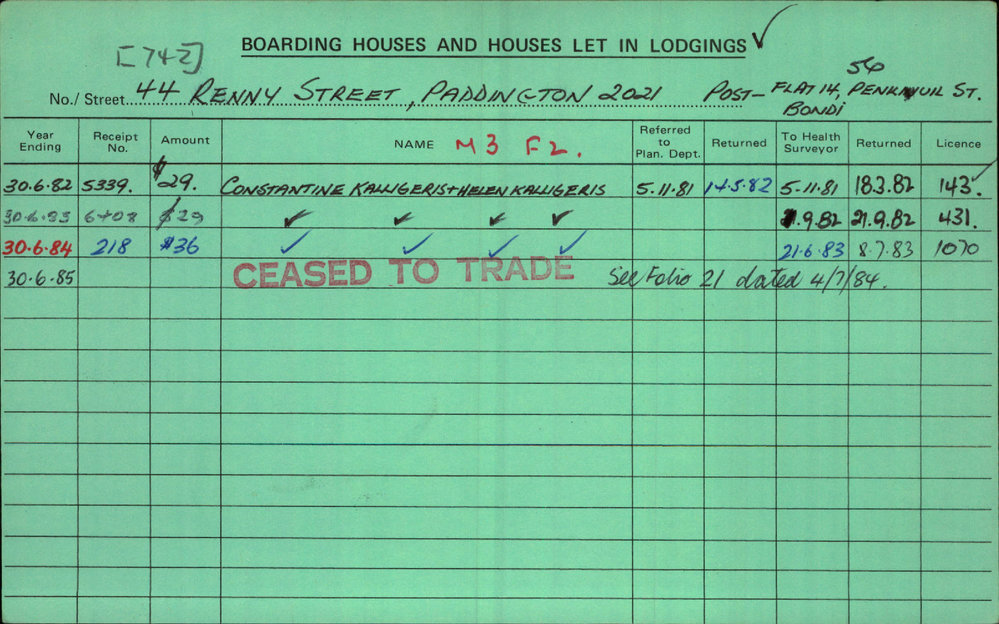 [742] BOARDING HOUSES AND HOUSES LET IN LODGINGS ✓
No./ Street 44 RENNY STREET, PADDINGTON 2021 POST- FLAT 14, 54 PENKIVIL ST.
BONDI
Year Ending Receipt No. Amount NAME M3 F2. Referred to Plan. Dept. Returned To Health Surveyor Returned Licence
30.6.82 5339. $29. CONSTANTINE KALLIGERIS + HELEN KALLIGERIS 5.11.81 14.5.82 5.11.81 18.3.82 143. ✓
30.6.83 6408 $29 ✓ ✓ ✓ ✓ 1.9.82 21.9.82 431.
30.6.84 218 $36 ✓ ✓ ✓ ✓ 21.6.83 8.7.83 1070
30.6.85 CEASED TO TRADE See Folio 21 dated 4/7/84.